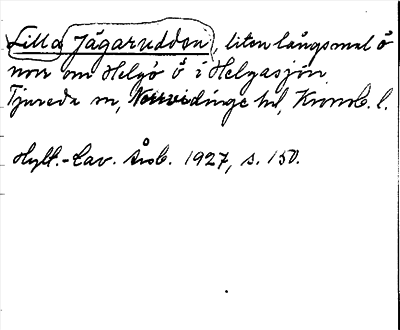 Lilla Jägarudden, liten långsmal ö
norr om Helgö ö i Helgasjön,
Tjureda sn, Norrvidinge hd, Kronob. l.
Hylt.-Cav. Årsb. 1927, s. 150.